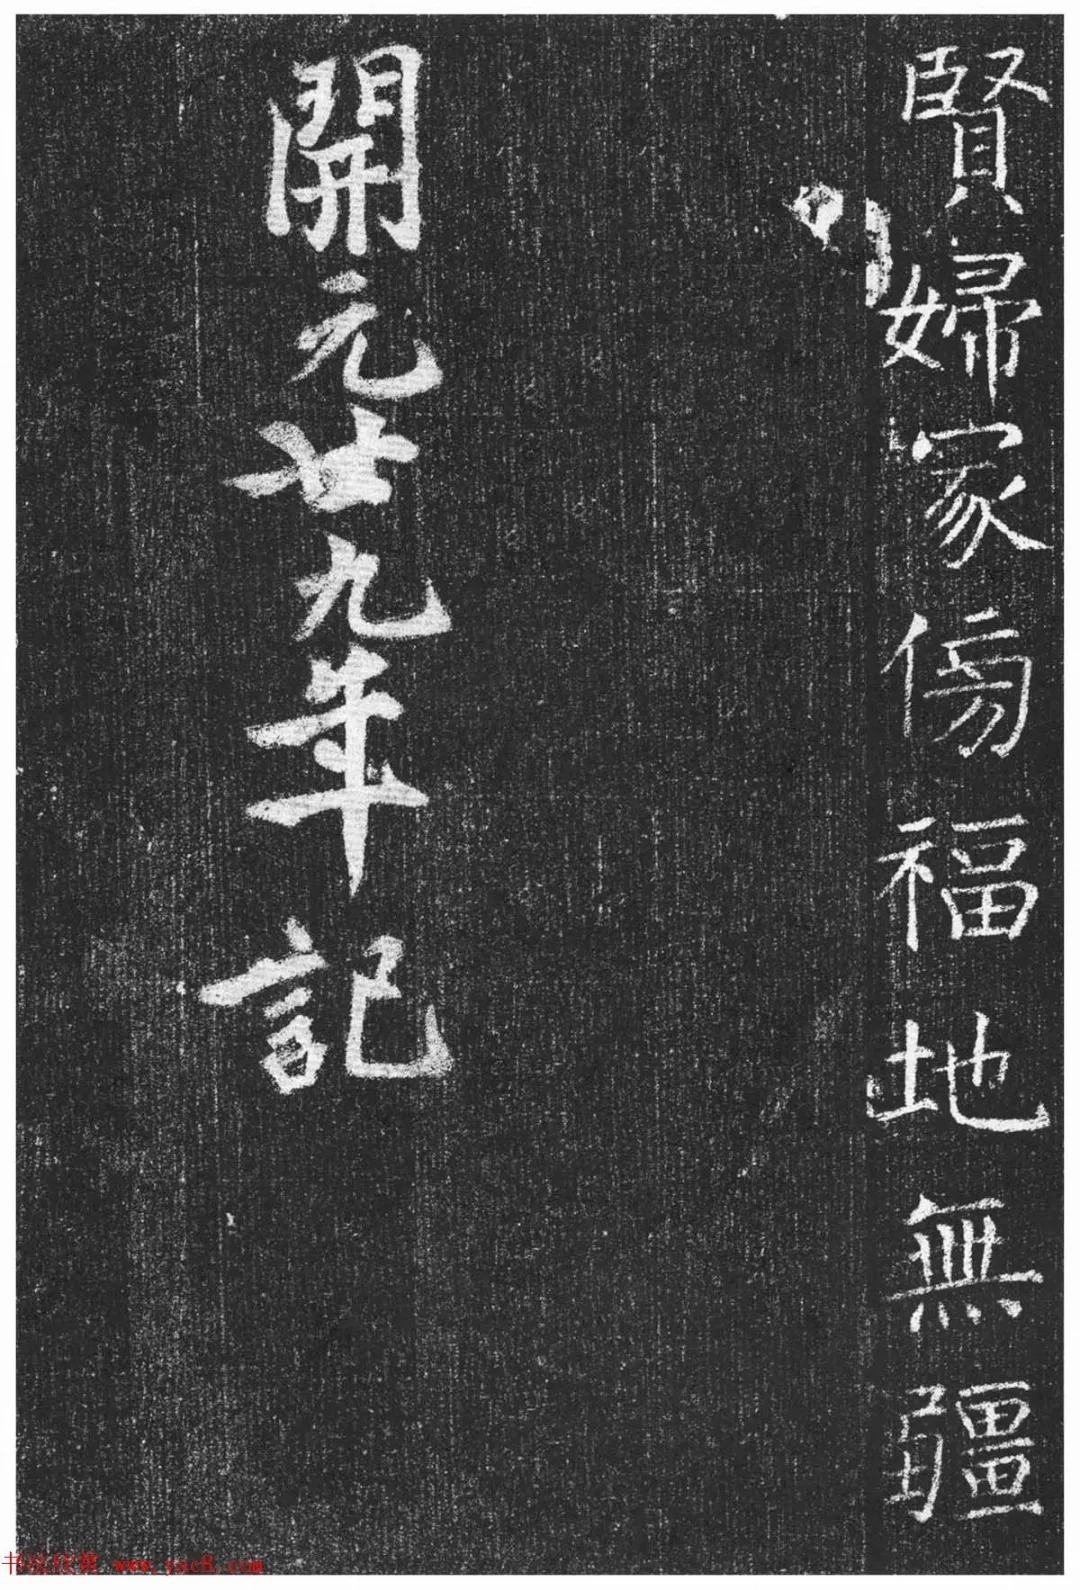 賢婦家傍福地無疆
開元廿九年記
书法欣赏 www.yac8.com